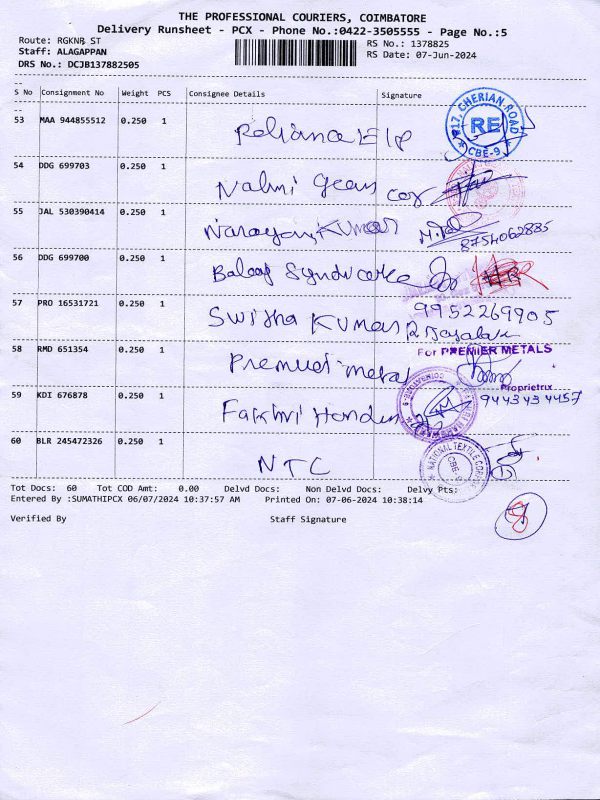 THE PROFESSIONAL COURIERS, COIMBATORE
Delivery Runsheet - PCX - Phone No.:0422-3505555 - Page No.:5
Route: RGKNR ST
RS No.: 1378825
Staff: ALAGAPPAN
RS Date: 07-Jun-2024
DRS No.: DCJB137882505
S No Consignment No Weight PCS Consignee Details Signature
53 MAA 944855512 0.250 1
Reliance E/P
17, CHERIAN ROAD RE CBE-9
54 DDG 699703 0.250 1
55 JAL 530390414 0.250 1
Narayan Kumar
8754062885
56 DDG 699700 0.250 1
Balaji Syndicate
57 PRO 16531721 0.250 1
Swisha Kumar
9952269905
58 RMD 651354 0.250 1
Premier metal
For PREMIER METALS
Proprietrix
9443434457
59 KDI 676878 0.250 1
Fakhri
60 BLR 245472326 0.250 1
NTC
NATIONAL TEXTILE CBE-9
Tot Docs: 60 Tot COD Amt: 0.00 Delvd Docs: Non Delvd Docs: Delvy Pts:
Entered By :SUMATHIPCX 06/07/2024 10:37:57 AM Printed On: 07-06-2024 10:38:14
8
Verified By Staff Signature